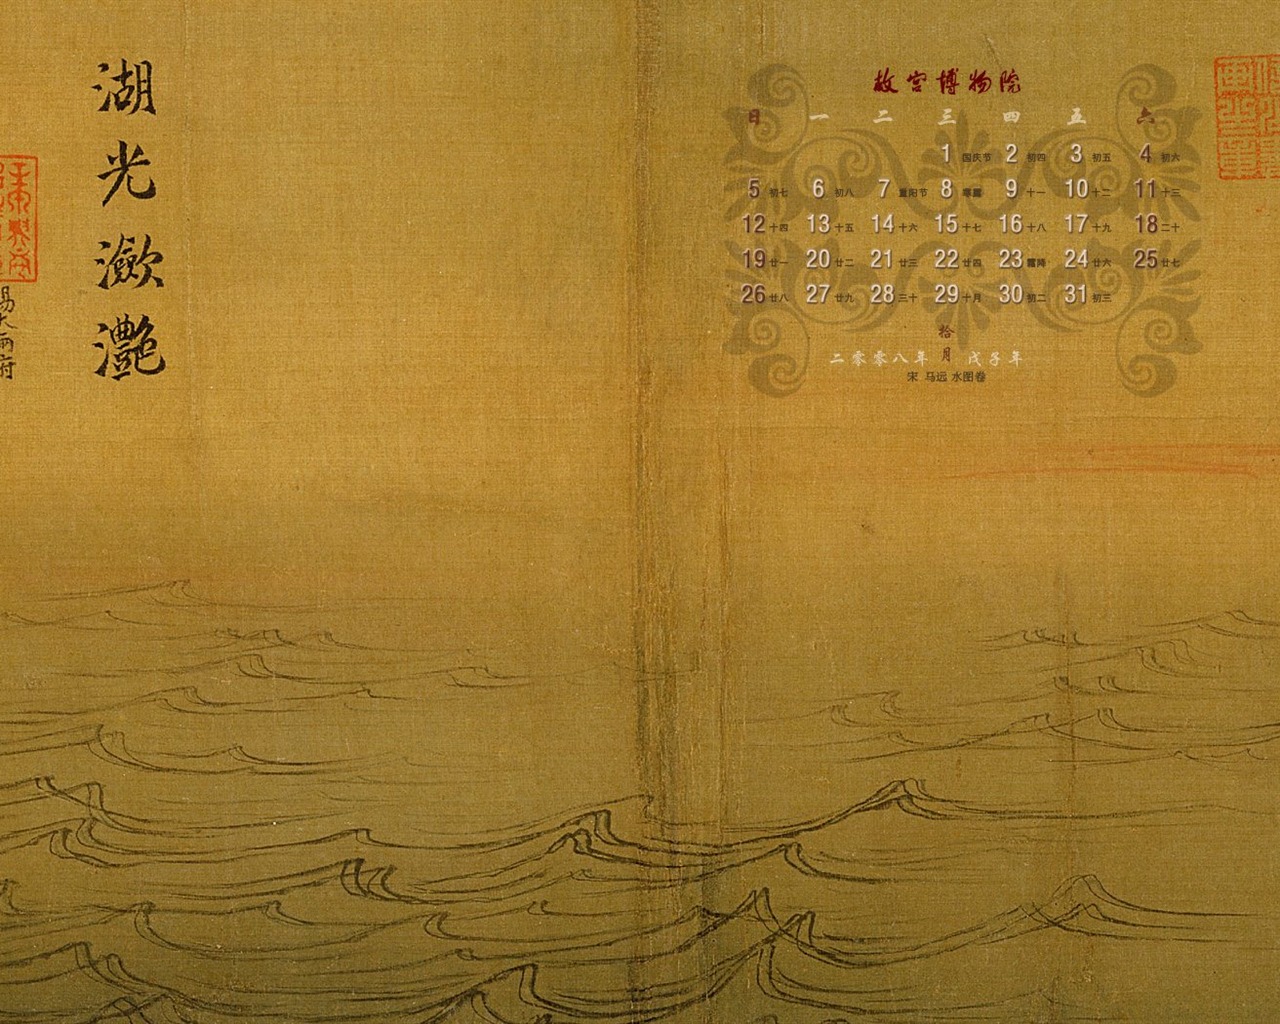 湖光瀲灩
故宫博物院
日 一 二 三 四 五 六
1 国庆节 2 初四 3 初五 4 初六
5 初七 6 初八 7 重阳节 8 寒露 9 十一 10 十二 11 十三
12 十四 13 十五 14 十六 15 十七 16 十八 17 十九 18 二十
19 廿一 20 廿二 21 廿三 22 廿四 23 霜降 24 廿六 25 廿七
26 廿八 27 廿九 28 三十 29 十月 30 初二 31 初三
拾月
二零零八年 戊子年
宋 马远 水图卷